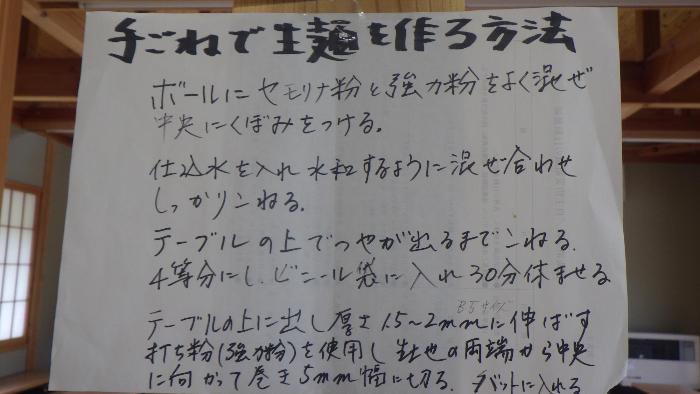 手ごねで生麺を作る方法
ボールにセモリナ粉と強力粉をよく混ぜ
中央にくぼみをつける。
仕込水を入れ水和するように混ぜ合わせ
しっかりこねる。
テーブルの上でつやが出るまでこねる。
4等分にし、ビニール袋に入れ30分休ませる
B5サイズ
テーブルの上に出し厚さ1.5～2mmに伸ばす
打ち粉(強力粉)を使用し生地の両端から中央
に向かって巻き5mm幅に切る。バットに入れる